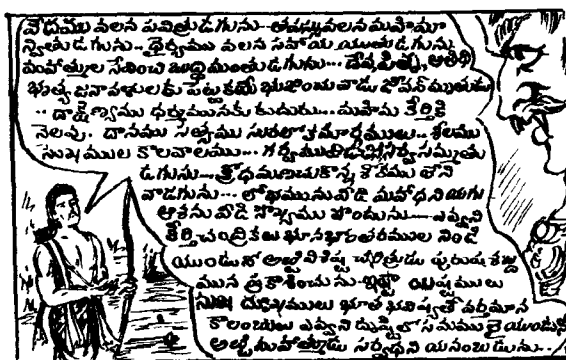 వేదము వలన పవిత్రుడగును.. తపస్సువలన మహిమా
న్వితుడగును.. ధైర్యము వలన సహాయ యుతుడగును
మహాత్ముల సేవించి బుద్ధిమంతుడగును... దేవ, పితృ, అతిథి
భృత్య జనావళులకు పెట్టకయే భుజించువాడు జీవన్మృతుడు
.. దాక్షిణ్యము ధర్మమునకు కుదురు... మహిమ కీర్తికి
నెలవు. దానము సత్యము సురలోకమార్గములు.. శీలము
సుఖముల కాలవాలము... గర్వమువిడిచిన సర్వసమ్మతు
డగును... క్రోధమణచుకొన్న శోకము లేని
వాడగును... లోభమునువీడి మహాధనియగు
ఆశను వీడి సౌఖ్యము పొందును... ఎవ్వని
కీర్తిచంద్రికలు భూనభాంతరముల నిండి
యుండునో అట్టివిశిష్ట చరిత్రుడు పురుష శబ్ద
మున ప్రకాశించును. ఇష్టా యిష్టములు
సుఖ దుఃఖములు భూత భవిష్యత్ వర్తమాన
కాలంబులు ఎవ్వని దృష్టిలో సమములై యుండునో
అట్టి మహాత్ముడు సర్వధని యనంబడును...